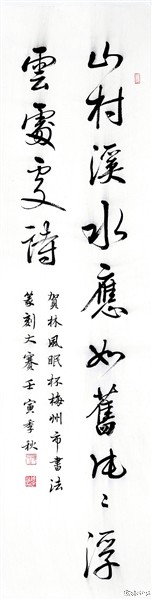 山村溪水應如舊片〻浮
雲處處詩
賀林風眠杯梅州市書法
篆刻大賽壬寅季秋